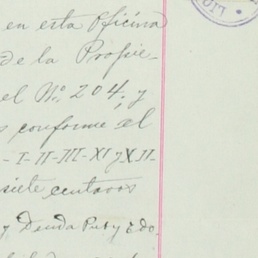 en esta Oficina
de la Propie-
el No. 204, y
conforme al
- I - II - III - XI y XII -
siete centavos
y Deuda Pub y Edo.